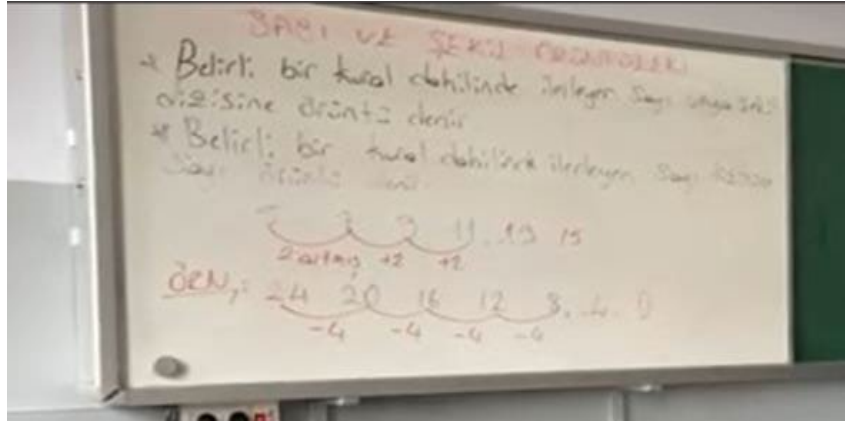 SAYI VE ŞEKİL ÖRÜNTÜLERİ
* Belirli bir kural dahilinde ilerleyen sayı veya şekil
dizisine örüntü denir
* Belirli bir kural dahilinde ilerleyen sayı
sayı örüntü
9 11 13 15
2 artmış +2 +2
ÖRN,: 24 20 16 12 8, 4, 0
-4 -4 -4 -4